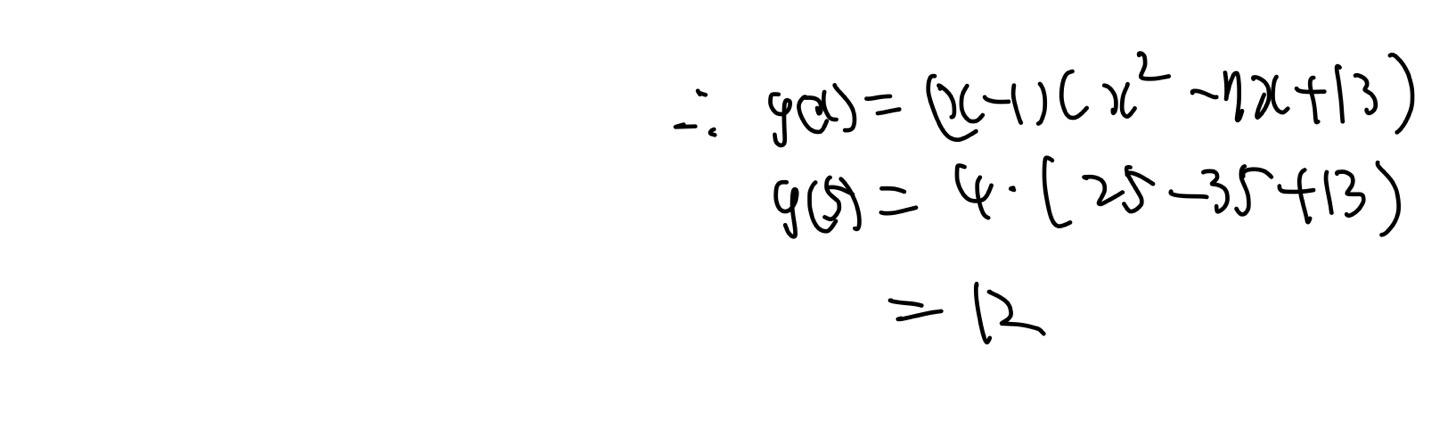 ∴ g(x) = (x-1)(x² -7x+13)
g(5) = 4·(25-35+13)
= 12